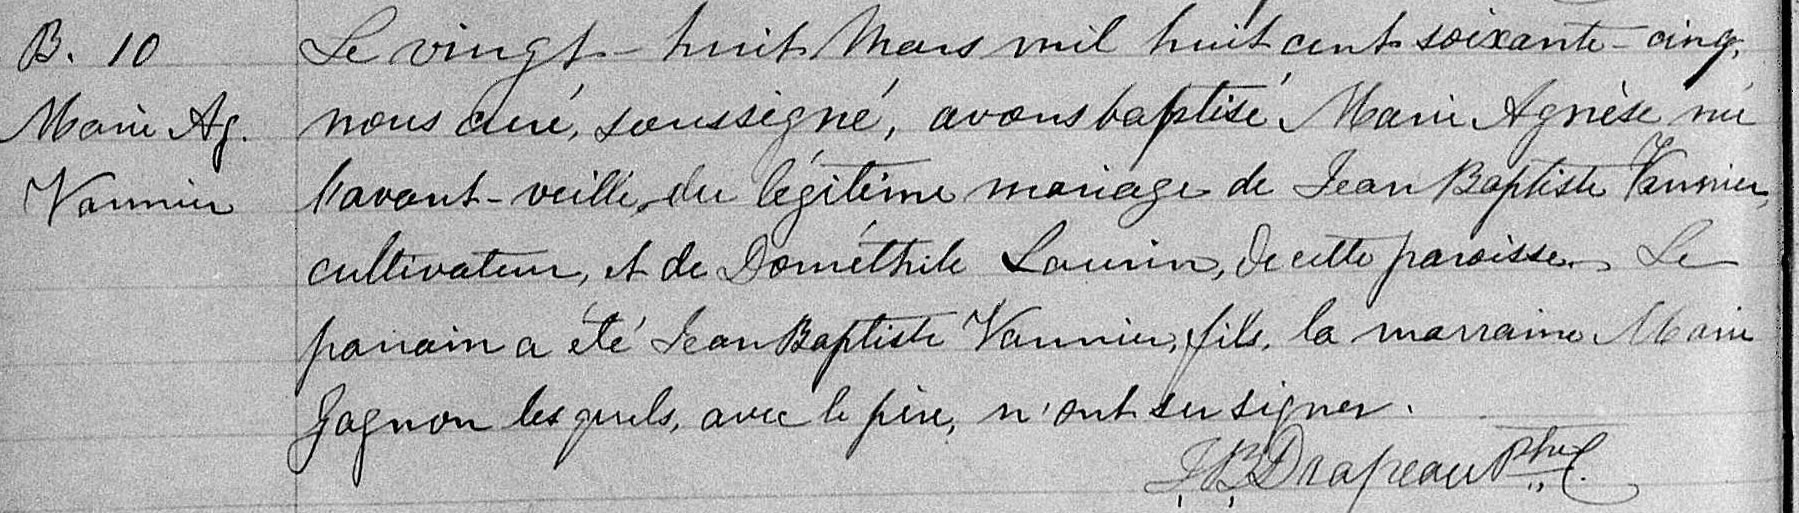 B. 10
Marie Ag.
Vannier
Le vingt-huit Mars mil huit cent soixante-cinq,
nous curé, soussigné, avons baptisé Marie Agnèse née
l'avant-veille, du légitime mariage de Jean Baptiste Vannier,
cultivateur, et de Dométhile Laurin, de cette paroisse. Le
parrain a été Jean Baptiste Vannier, fils, la marraine Marie
Gagnon les quels, avec le père, n'ont su signer.
J, B, Drapeau Ptre C.